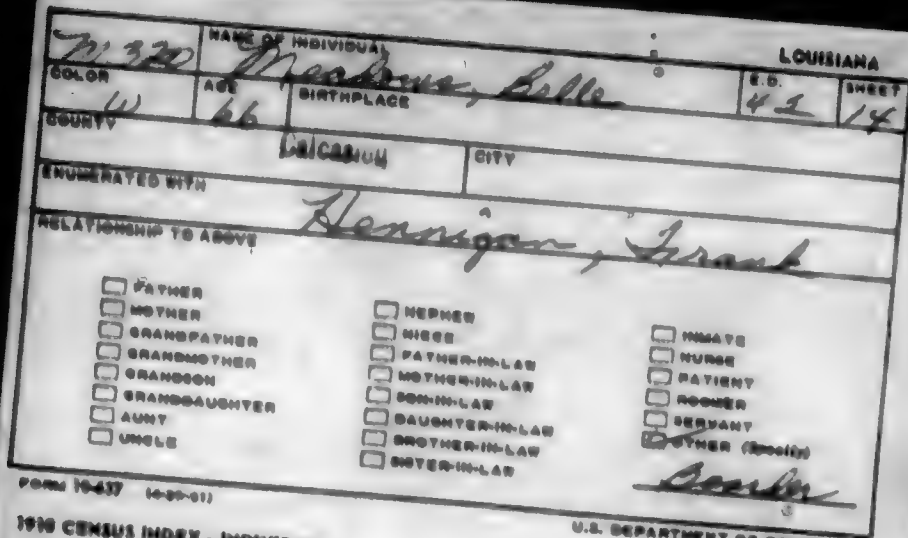 NAME OF INDIVIDUAL LOUISIANA
M. 320 Meadows, Belle
COLOR AGE BIRTHPLACE E.D. SHEET
W 66 42 14
COUNTY Calcasieu CITY
ENUMERATED WITH
Hennigan, Frank
RELATIONSHIP TO ABOVE
FATHER
MOTHER
GRANDFATHER
GRANDMOTHER
GRANDSON
GRANDDAUGHTER
AUNT
UNCLE
NEPHEW
NIECE
FATHER-IN-LAW
MOTHER-IN-LAW
SON-IN-LAW
DAUGHTER-IN-LAW
BROTHER-IN-LAW
SISTER-IN-LAW
INMATE
NURSE
PATIENT
ROOMER
SERVANT
OTHER (Specify)
Boarder
FORM
CENSUS INDEX
U.S. DEPARTMENT OF